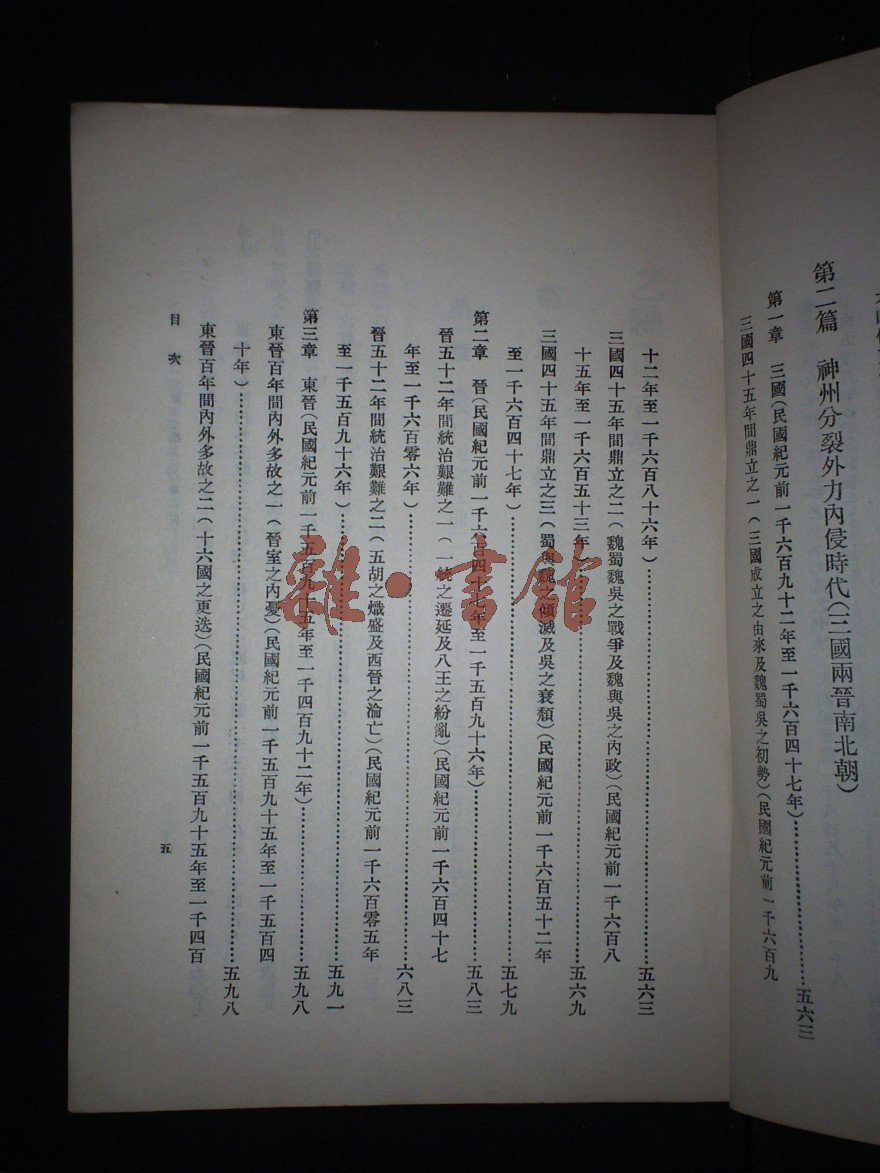 第二篇 神州分裂外力內侵時代(三國兩晉南北朝)
第一章 三國(民國紀元前一千六百九十二年至一千六百四十七年)……五六三
三國四十五年間鼎立之一(三國成立之由來及魏蜀吳之初勢)(民國紀元前一千六百九
十二年至一千六百八十六年)……五六三
三國四十五年間鼎立之二(魏蜀魏吳之戰爭及魏與吳之內政)(民國紀元前一千六百八
十五年至一千六百五十三年……五六九
三國四十五年間鼎立之三(蜀與魏之傾滅及吳之衰頹)(民國紀元前一千六百五十二年
至一千六百四十七年)……五七九
第二章 晉(民國紀元前一千六百四十七年至一千五百九十六年)……五八三
晉五十二年間統治艱難之一(一統之遷延及八王之紛亂)(民國紀元前一千六百四十七
年至一千六百零六年)……六八三
晉五十二年間統治艱難之二(五胡之熾盛及西晉之淪亡)(民國紀元前一千六百零五年
至一千五百九十六年)……五九一
第三章 東晉(民國紀元前一千五百九十五年至一千四百九十二年)……五九八
東晉百年間內外多故之一(晉室之內憂)(民國紀元前一千五百九十五年至一千五百四
十年)……五九八
東晉百年間內外多故之二(十六國之更迭)(民國紀元前一千五百九十五年至一千四百
目次
五
雜·書館